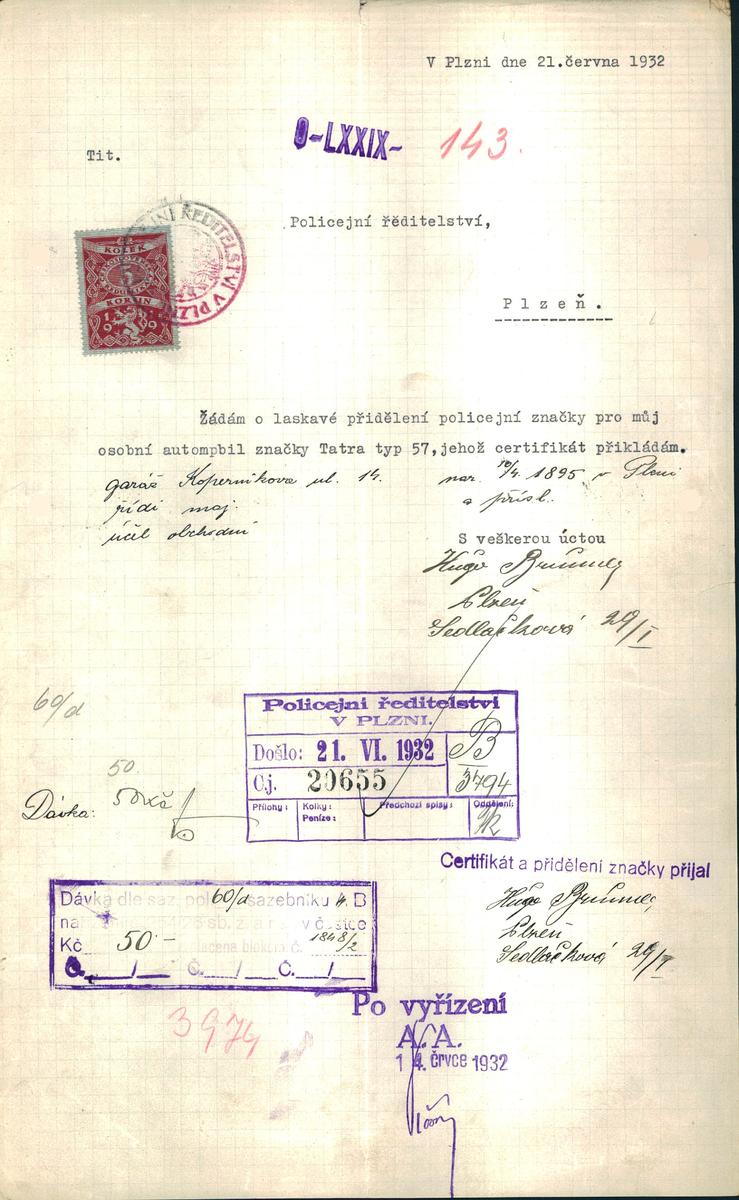 V Plzni dne 21.června 1932
O-LXXIX- 143.
Tit.
Policejní řěditelství,
ŘEDITELSTVÍ V PLZNI
KOLEK
5
KORUN
1919
Plzeň.
Žádám o laskavé přidělení policejní značky pro můj
osobní autompbil značky Tatra typ 57,jehož certifikát přikládám.
garáž Koperníkova ul. 14. nar. 10/4. 1895 v Plzni
řídí maj. a přísl.
účel obchodní
S veškerou úctou
Hugo
Plzeň
Sedláčková 29/I
60/d
Policejní ředitelství
V PLZNI.
Došlo: 21. VI. 1932 B
Čj. 20655 3794
Přílohy: Kolky: Peníze: Předchozí spisy: Oddělení:
50.
Dávka: 50 Kč
Certifikát a přidělení značky přijal
Hugo
Plzeň
Sedláčková 29/I
Dávka dle saz. pol. 60/d sazebníku B
Kč 50 - 1848/2
Č. / Č. / Č. /
Po vyřízení
A. A.
14. črvce 1932
3974